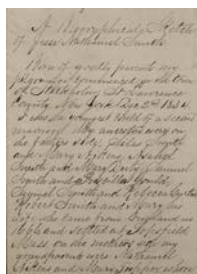 A Biographical Sketch
of Jesse Nathaniel Smith
Born of goodly parents my
pilgrimage commenced in the town
of Stockholm St Lawrence
County New York Dec 2nd 1834
I was the youngest child of a second
marriage. My ancestors were on
the fathers side; Silas Smith
and Mary Aikens, Asahel
Smith and Mary Duty, Samuel
Smith and Priscilla Gould,
Samuel Smith and Rebecca Curtis
Robert Smith and Mary his
wife who came from England in
and settled at Topsfield
Mass on the mothers side my
grandparents were Nathaniel
Aikens and Mary whose